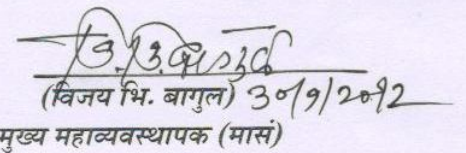 (विजय भि. बागुल) 30/9/2012
मुख्य महाव्यवस्थापक (मासं)